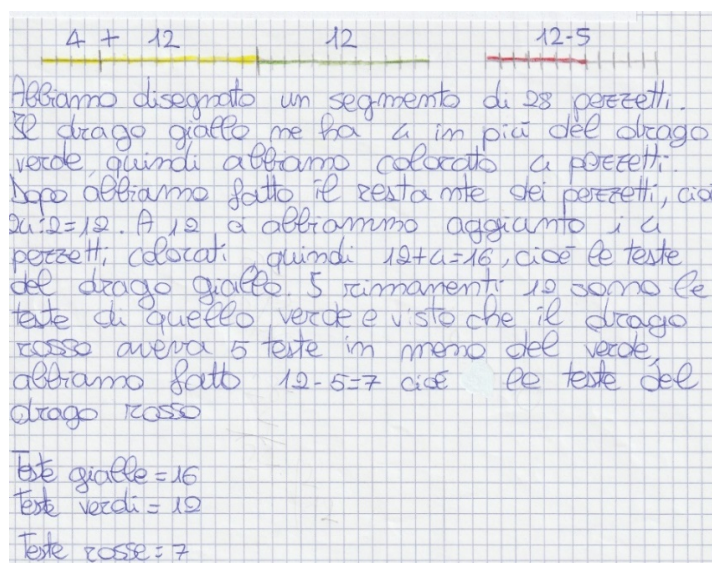 4 + 12 12 12-5
Abbiamo disegnato un segmento di 28 pezzetti.
Il drago giallo ne ha 4 in più del drago
verde, quindi abbiamo colorato 4 pezzetti.
Dopo abbiamo fatto il restante dei pezzetti, cioè
24:2=12. A 12 a abbiammo aggiunto i 4
pezzetti colorati quindi 12+4=16, cioè le teste
del drago giallo. I rimanenti 12 sono le
teste di quello verde e visto che il drago
rosso aveva 5 teste in meno del verde,
abbiamo fatto 12-5=7 cioè le teste del
drago rosso
Teste gialle=16
Teste verdi=12
Teste rosse=7